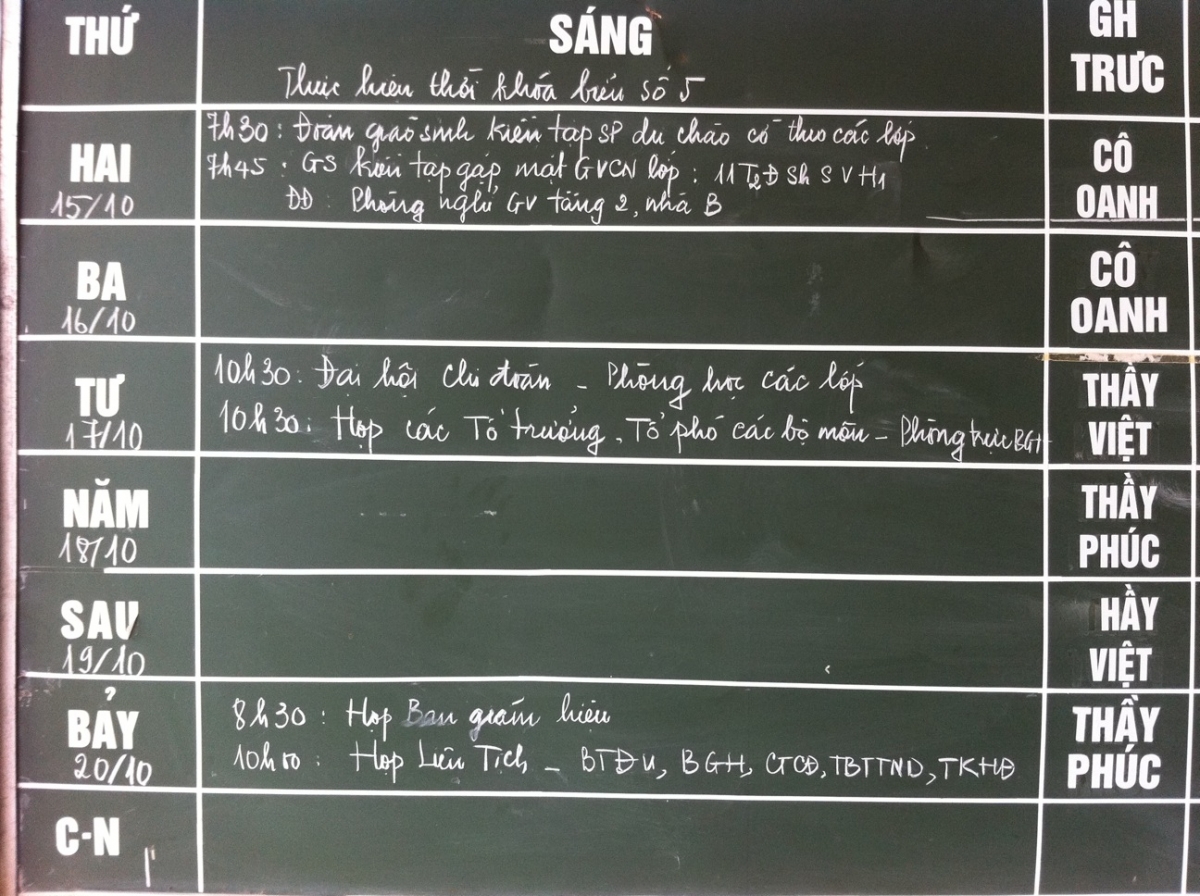 THỨ SÁNG GH TRƯC
Thực hiện thời khóa biểu số 5
HAI 15/10 CÔ OANH
7h30: Đoàn giáo sinh kiến tập SP dự chào cờ theo các lớp.
7h45: GS kiến tập gặp mặt GVCN lớp: 11 T2 Đ Sh S V H1
ĐĐ: Phòng nghỉ GV tầng 2, nhà B
BA 16/10 CÔ OANH
TƯ 17/10 THẦY VIỆT
10h30: Đại hội chi đoàn - Phòng học các lớp
10h30: Họp các Tổ trưởng, Tổ phó các bộ môn - Phòng trực BGH
NĂM 18/10 THẦY PHÚC
SAU 19/10 HẦY VIỆT
BẢY 20/10 THẦY PHÚC
8h30: Họp Ban giám hiệu
10h00: Họp Liên Tịch - BTĐU, BGH, CTCĐ, TBTTND, TKHĐ
C-N